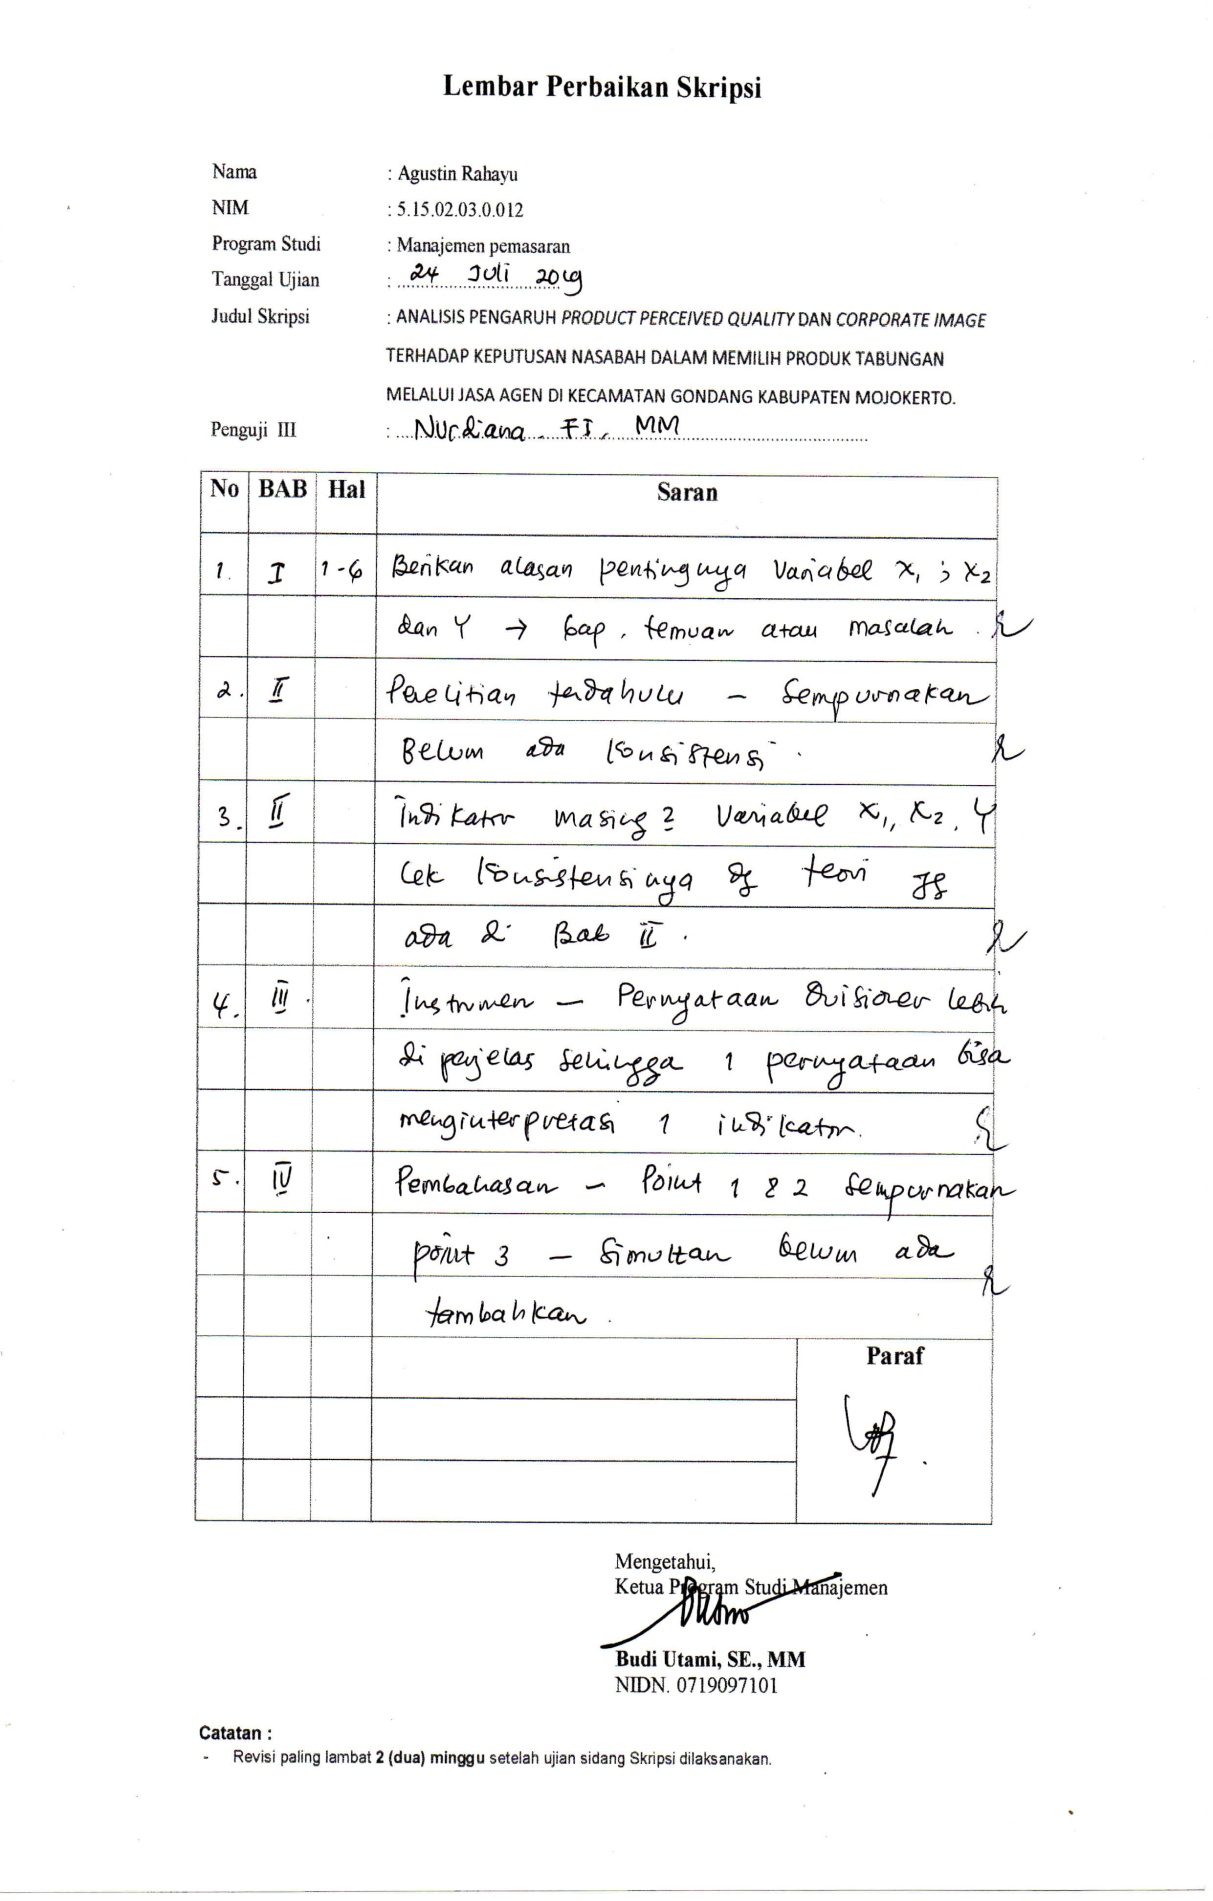 Lembar Perbaikan Skripsi
Nama : Agustin Rahayu
NIM : 5.15.02.03.0.012
Program Studi : Manajemen pemasaran
Tanggal Ujian : 24 Juli 2019
Judul Skripsi : ANALISIS PENGARUH PRODUCT PERCEIVED QUALITY DAN CORPORATE IMAGE
TERHADAP KEPUTUSAN NASABAH DALAM MEMILIH PRODUK TABUNGAN
MELALUI JASA AGEN DI KECAMATAN GONDANG KABUPATEN MOJOKERTO.
Penguji III : Nurdiana. FI, MM
No BAB Hal Saran
1. I 1-6 Berikan alasan pentingnya Variabel X1 ; X2
dan Y → Gap, temuan atau masalah.
2. II Penelitian terdahulu - Sempurnakan
Belum ada Konsistensi.
3. II Indikator masing2 Variabel X1, X2, Y
Cek Konsistensinya dg teori yg
ada di Bab II.
4. III. Instrumen - Pernyataan Quisioner lebih
di perjelas sehingga 1 pernyataan bisa
menginterpretasi 1 indikator.
5. IV Pembahasan - Point 1 & 2 Sempurnakan
point 3 - Simultan belum ada
tambahkan.
Paraf
Mengetahui,
Ketua Program Studi Manajemen
Budi Utami, SE., MM
NIDN. 0719097101
Catatan :
- Revisi paling lambat 2 (dua) minggu setelah ujian sidang Skripsi dilaksanakan.